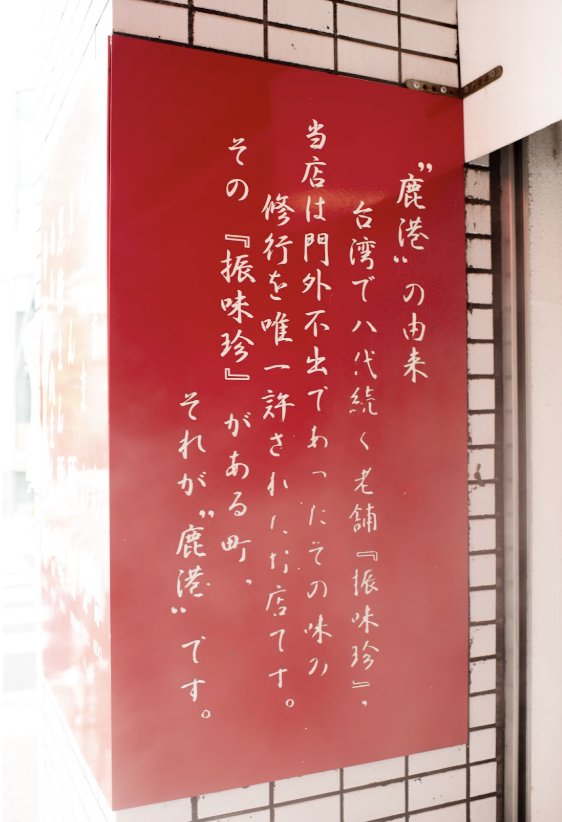 ”鹿港„の由来
台湾で八代続く老舗『振味珍』、
当店は門外不出であったその味の
修行を唯一許されたお店です。
その『振味珍』がある町、
それが”鹿港„です。